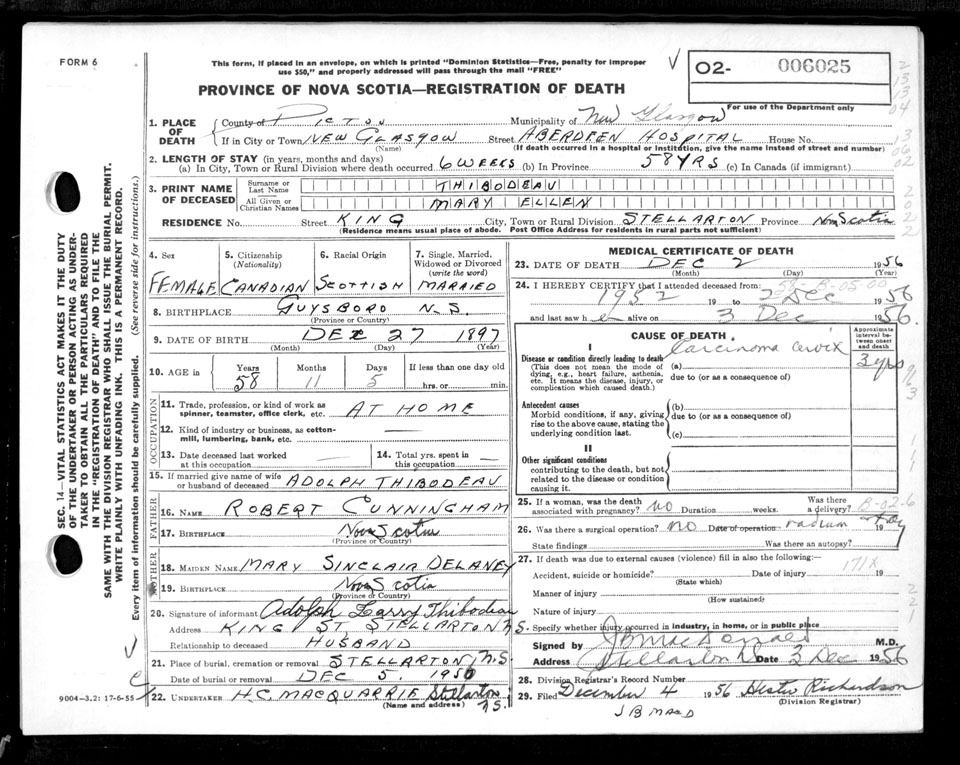 FORM 6
This form, if placed in an envelope, on which is printed "Dominion Statistics—Free, penalty for improper
use $50," and properly addressed will pass through the mail "FREE"
PROVINCE OF NOVA SCOTIA—REGISTRATION OF DEATH
02- 006025
For use of the Department only
SEC. 14—VITAL STATISTICS ACT MAKES IT THE DUTY
OF THE UNDERTAKER OR PERSON ACTING AS UNDER-
TAKER TO OBTAIN ALL THE PARTICULARS REQUIRED
IN THE "REGISTRATION OF DEATH" AND TO FILE THE
SAME WITH THE DIVISION REGISTRAR WHO SHALL ISSUE THE BURIAL PERMIT.
WRITE PLAINLY WITH UNFADING INK. THIS IS A PERMANENT RECORD.
Every item of information should be carefully supplied. (See reverse side for instructions.)
1. PLACE OF DEATH
County of PICTOU Municipality of New Glasgow
If in City or Town NEW GLASGOW Street ABERDEEN HOSPITAL House No.
(Name) (If death occurred in a hospital or institution, give the name instead of street and number)
2. LENGTH OF STAY (in years, months and days)
(a) In City, Town or Rural Division where death occurred 6 WEEKS (b) In Province 58 YRS (c) In Canada (if immigrant)
3. PRINT NAME OF DECEASED
Surname or Last Name THIBODEAU
All Given or Christian Names MARY ELLEN
RESIDENCE No. Street KING City, Town or Rural Division STELLARTON Province Nova Scotia
(Residence means usual place of abode. Post Office Address for residents in rural parts not sufficient)
4. Sex
FEMALE
5. Citizenship (Nationality)
CANADIAN
6. Racial Origin
SCOTTISH
7. Single, Married, Widowed or Divorced (write the word)
MARRIED
8. BIRTHPLACE GUYSBORO N.S.
(Province or Country)
9. DATE OF BIRTH DEC 27 1897
(Month) (Day) (Year)
10. AGE in Years Months Days If less than one day old
58 11 5 hrs. or min.
OCCUPATION
11. Trade, profession, or kind of work as spinner, teamster, office clerk, etc. AT HOME
12. Kind of industry or business, as cotton-mill, lumbering, bank, etc.
13. Date deceased last worked at this occupation
14. Total yrs. spent in this occupation
15. If married give name of wife or husband of deceased ADOLPH THIBODEAU
FATHER
16. NAME ROBERT CUNNINGHAM
17. BIRTHPLACE Nova Scotia
(Province or Country)
MOTHER
18. MAIDEN NAME MARY SINCLAIR DELANEY
19. BIRTHPLACE Nova Scotia
(Province or Country)
20. Signature of informant Adolph Larry Thibodeau
Address KING ST. STELLARTON N.S.
Relationship to deceased HUSBAND
21. Place of burial, cremation or removal STELLARTON, N.S.
Date of burial or removal DEC 5, 1956
22. UNDERTAKER H.C. MACQUARRIE Stellarton N.S.
(Name and address)
9004—3.2: 17-6-55
MEDICAL CERTIFICATE OF DEATH
23. DATE OF DEATH DEC 2 1956
(Month) (Day) (Year)
24. I HEREBY CERTIFY that I attended deceased from:
1952 19 to 2 Dec 1956
and last saw h e alive on 3 Dec 1956.
CAUSE OF DEATH
Approximate interval between onset and death
I
Disease or condition directly leading to death
(This does not mean the mode of dying, e.g., heart failure, asthenia, etc. It means the disease, injury, or complication which caused death.)
(a) Carcinoma Cervix 3 yrs
due to (or as a consequence of)
Antecedent causes
Morbid conditions, if any, giving rise to the above cause, stating the underlying condition last.
(b)
due to (or as a consequence of)
(c)
II
Other significant conditions
contributing to the death, but not related to the disease or condition causing it.
25. If a woman, was the death associated with pregnancy? no Duration weeks. Was there a delivery? B-02-6
26. Was there a surgical operation? no Date of operation radium 19
State findings Was there an autopsy?
27. If death was due to external causes (violence) fill in also the following:—
Accident, suicide or homicide? Date of injury 171X 19
(State which)
Manner of injury
(How sustained)
Nature of injury
Specify whether injury occurred in industry, in home, or in public place
Signed by J B MacDonald M.D.
Address Stellarton Date 3 Dec 1956
28. Division Registrar's Record Number
29. Filed December 4 1956 Hester Richardson
(Division Registrar)
J B MacD